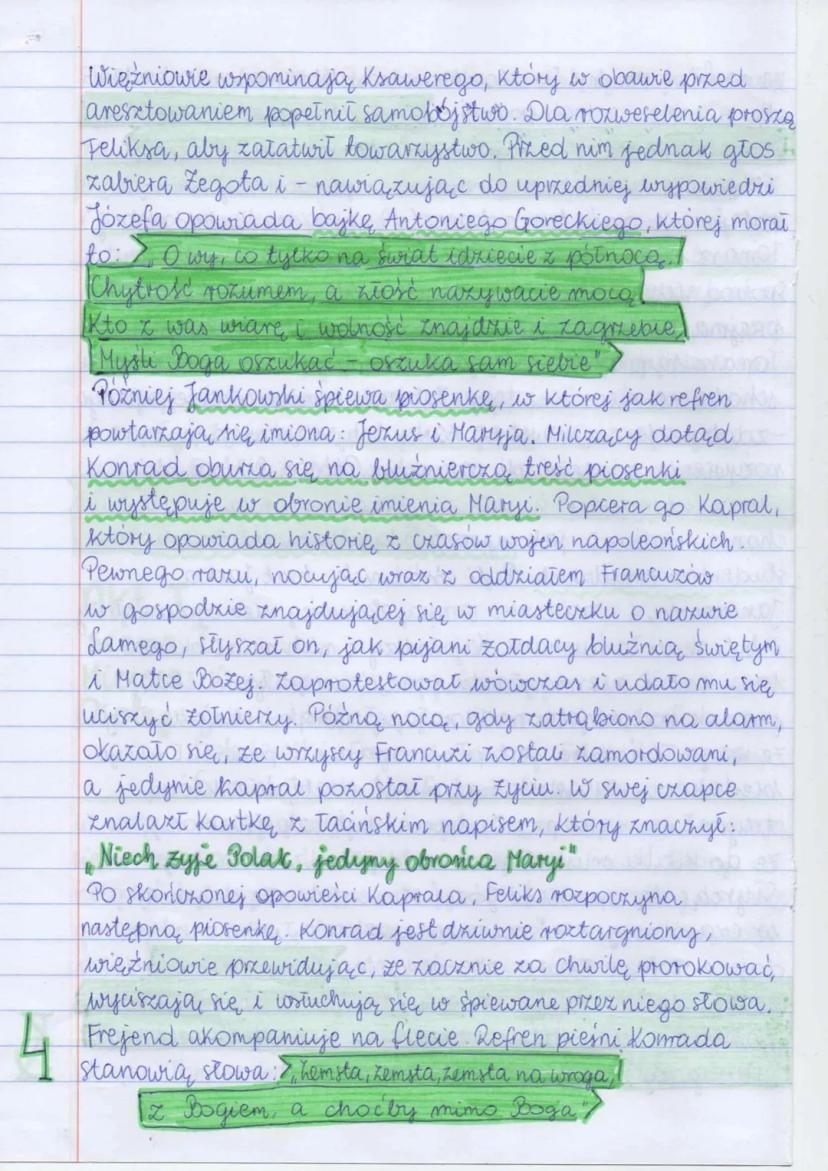 Więźniowie wspominają Ksawerego, który w obawie przed
aresztowaniem popełnił samobójstwo. Dla rozweselenia proszą
Feliksa, aby załatwił towarzystwo. Przed nim jednak głos
zabiera Żegota i - nawiązując do uprzedniej wypowiedzi
Józefa opowiada bajkę Antoniego Goreckiego, której morał
to: „O wy, co tylko na świat idziecie z północą.
Chytrość rozumem, a złość nazywacie mocą
Kto z was wiarę i wolność znajdzie i zagrzebie
Myśli Boga oszukać - oszuka sam siebie"
Później Jankowski śpiewa piosenkę, w której jak refren
powtarzają się imiona: Jezus i Maryja. Milczący dotąd
Konrad oburza się na bluźnierczą treść piosenki
i występuje w obronie imienia Maryi. Popiera go Kapral,
który opowiada historię z czasów wojen napoleońskich.
Pewnego razu, nocując wraz z oddziałem Francuzów
w gospodzie znajdującej się w miasteczku o nazwie
Lamego, słyszał on, jak pijani żołdacy bluźnią świętym
i Matce Bożej. Zaprotestował wówczas i udało mu się
uciszyć żołnierzy. Późną nocą, gdy zatrąbiono na alarm,
okazało się, że wszyscy Francuzi zostali zamordowani,
a jedynie Kapral pozostał przy życiu. W swej czapce
znalazł kartkę z łacińskim napisem, który znaczył:
„Niech żyje Polak, jedyny obrońca Maryi"
Po skończonej opowieści Kaprala, Feliks rozpoczyna
następną piosenkę. Konrad jest dziwnie roztargniony,
więźniowie przewidując, że zacznie za chwilę prorokować,
wyciszają się i wsłuchują się w śpiewane przez niego słowa.
Frejend akompaniuje na flecie. Refren pieśni Konrada
4 stanowią słowa: „Zemsta, zemsta, zemsta na wroga,
z Bogiem, a choćby mimo Boga"